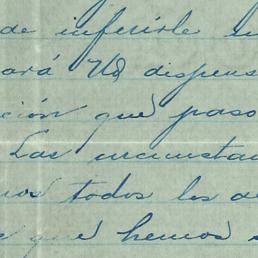 de inferirle su
ará Vd dispens
ción que paso
Las circunsta
nos todos los d
que hemos s